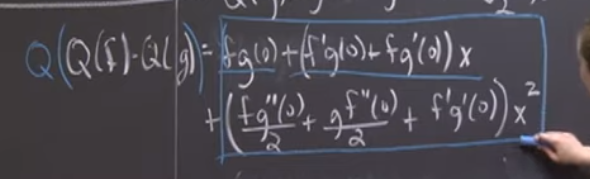 Q(Q(f)·Q(g)) = fg(0) + (f'g(0) + fg'(0)) x
+ (fg''(0)/2 + gf''(0)/2 + f'g'(0)) x²